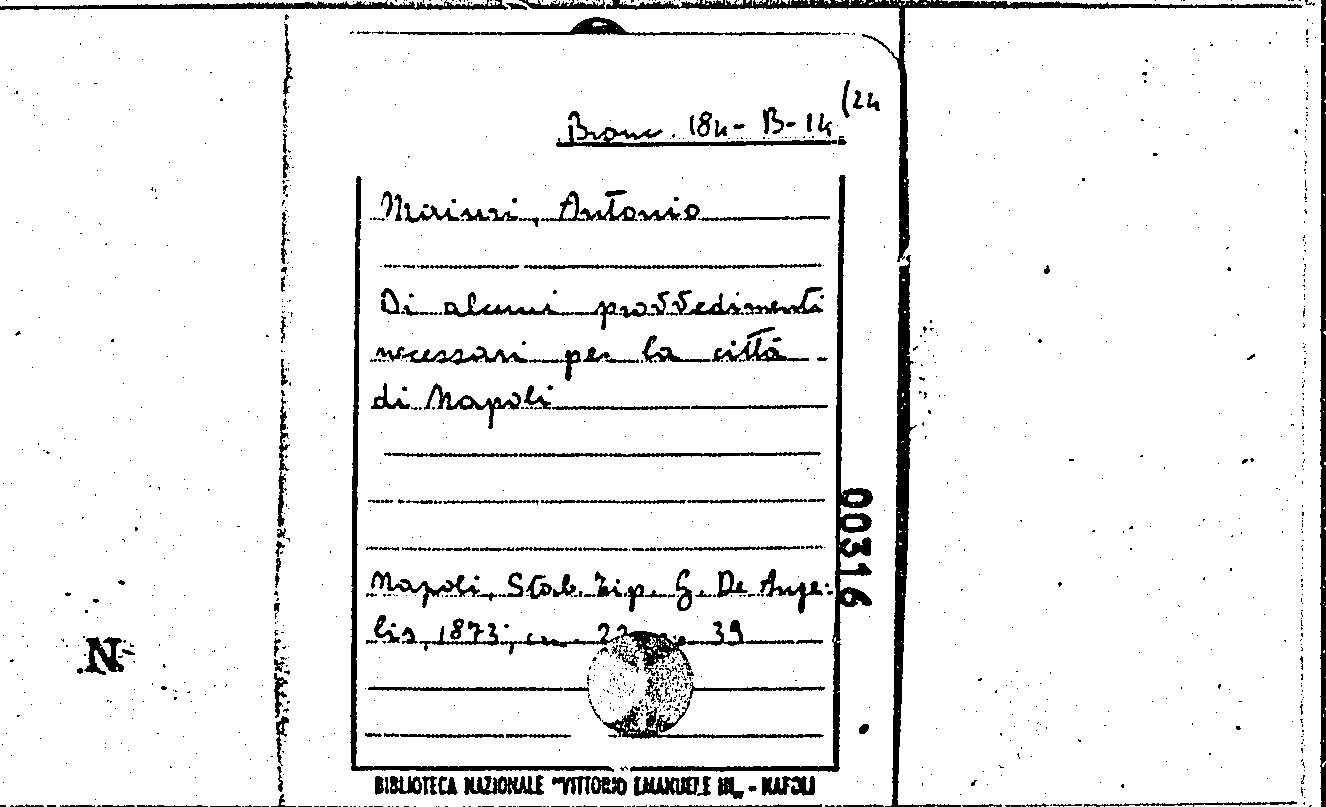 Branc. 184- B-14 (24
Maiuri, Antonio
Di alcuni provvedimenti
necessari per la città
di Napoli
Napoli, Stab. Tip. G. De Ange-
lis, 1873; cm. 22 39
00316
N
BIBLIOTECA NAZIONALE "VITTORIO EMANUELE III" - NAPOLI